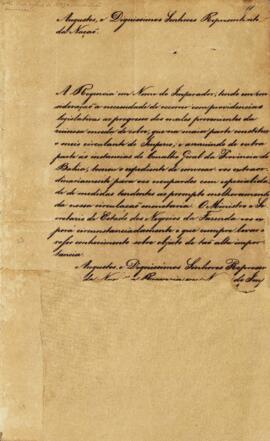 Augustos, e Dignissimos Senhores Representantes
da Nação.
A Regencia em Nome do Imperador, tendo em con-
sideração a necessidade de occorrer com providencias
legislativas ao progresso dos males provenientes da
moeda de cobre, que na maior parte constitue
o meio circulante do Imperio, e annuindo de outra
parte ás instancias do Conselho Geral da Provincia da
Bahia, tomou o expediente de convocar vos extraor-
dinariamente para vos occupardes com especialida-
de de medidas tendentes ao prompto melhoramento
da nossa circulação monetaria. O Ministro e Se-
cretario de Estado dos Negocios da Fazenda vos ex-
porá circunstanciadamente o que cumpre levar a
vosso conhecimento sobre objecto de tão alta impor-
tancia.
Augustos, e Dignissimos Senhores Represen